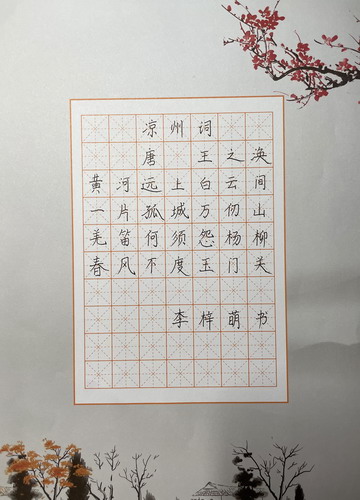 凉州词
唐 王之涣
黄河远上白云间
一片孤城万仞山
羌笛何须怨杨柳
春风不度玉门关
李梓萌书